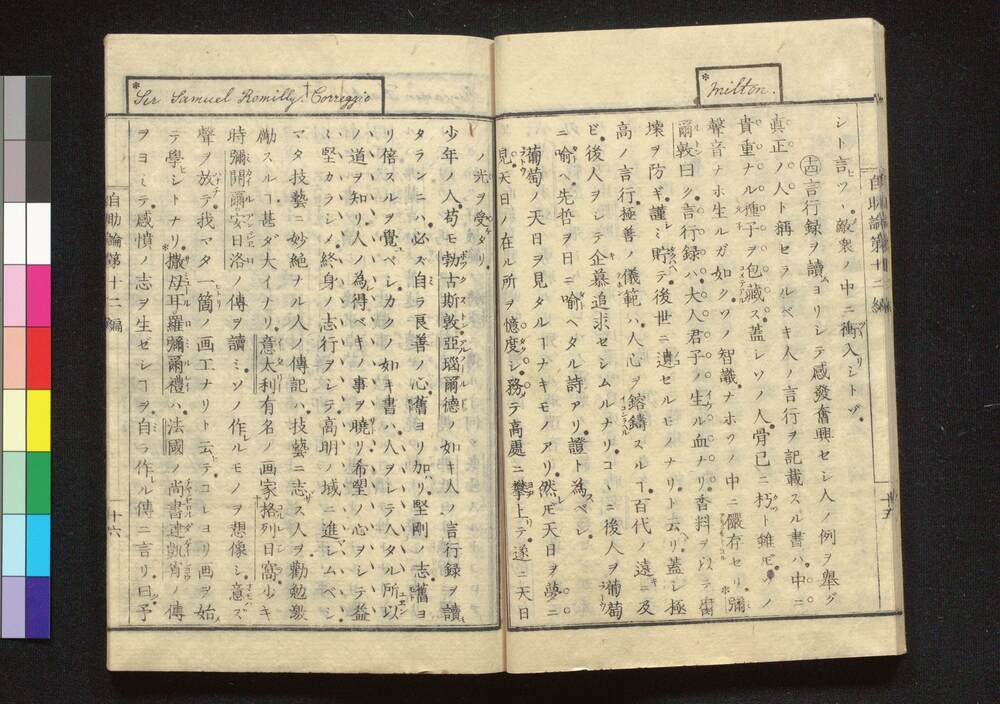 *Milton.
自助論第十二編
十五
シト言ツヽ敵衆ノ中ニ衝入リシトゾ
㊃言行録ヲ讀ムヨリシテ感發奮興セシ人ノ例ヲ擧グ
眞正ノ人ト稱セラルベキ人ノ言行ヲ記載スル書ハ中ニ
貴重ナル種子ヲ包藏ス蓋シソノ人骨已ニ朽ト雖モソノ
聲音ナホ生ルガ如クソノ智識ナホソノ中ニ儼存セリ*彌
爾敦曰ク言行録ハ大人君子ノ生ル血ナリ香料ヲ以テ
壞ヲ防ギ謹ミ貯テ後世ニ遺セルモノナリト云リ蓋シ極
高ノ言行極善ノ儀範ハ人心ヲ鎔鑄スルヿ百代ノ遠ニ及
ビ後人ヲシテ企慕追求セシムルナリコヽニ後人ヲ葡萄
ニ喩ヘ先哲ヲ日ニ喩ヘタル詩アリ證ト為スベシ
葡萄ノ天日ヲ見タルヿナキモノアリ然レ𪜈天日ヲ夢ニ
見天日ノ在ル所ヲ憶度シ務テ高處ニ攀上リテ遂ニ天日
*Sir Samuel Romilly. †Correggio
ノ光ヲ受タリ
少年ノ人苟モ勃古斯敦亞瑙爾德ノ如キ人ノ言行録ヲ讀
タランニハ必ズ自ラ良善ノ心舊ヨリ加ハリ堅剛ノ志舊ヨ
リ倍スルヲ覺ベシカクノ如キ書ハ人ヲシテ人タル所以
ノ道ヲ知リ人ノ為得ベキノ事ヲ曉リ希望ノ心ヲシテ益
ミ堅カラシメ終身ノ志行ヲシテ高明ノ域ニ進シムベシ
マタ技藝ニ妙絶ナル人ノ傳記ハ技藝ニ志ス人ヲ勸勉激
勵スルヿ甚ダ大イナリ意太利有名ノ画家†格列日窩少キ
時彌開爾安日洛ノ傳ヲ讀ミソノ作ルモノヲ想像シ意ズ
聲ヲ放テ我マタ一箇ノ画工ナリト云テコレヨリ画ヲ始
テ學ビシトナリ*撒母耳羅彌爾禮ハ法國ノ尚書達凱宵ノ傳
ヲヨミテ感憤ノ志ヲ生ゼシヿヲ自ラ作レル傳ニ言リ曰ク予
自助論第十二編
十六